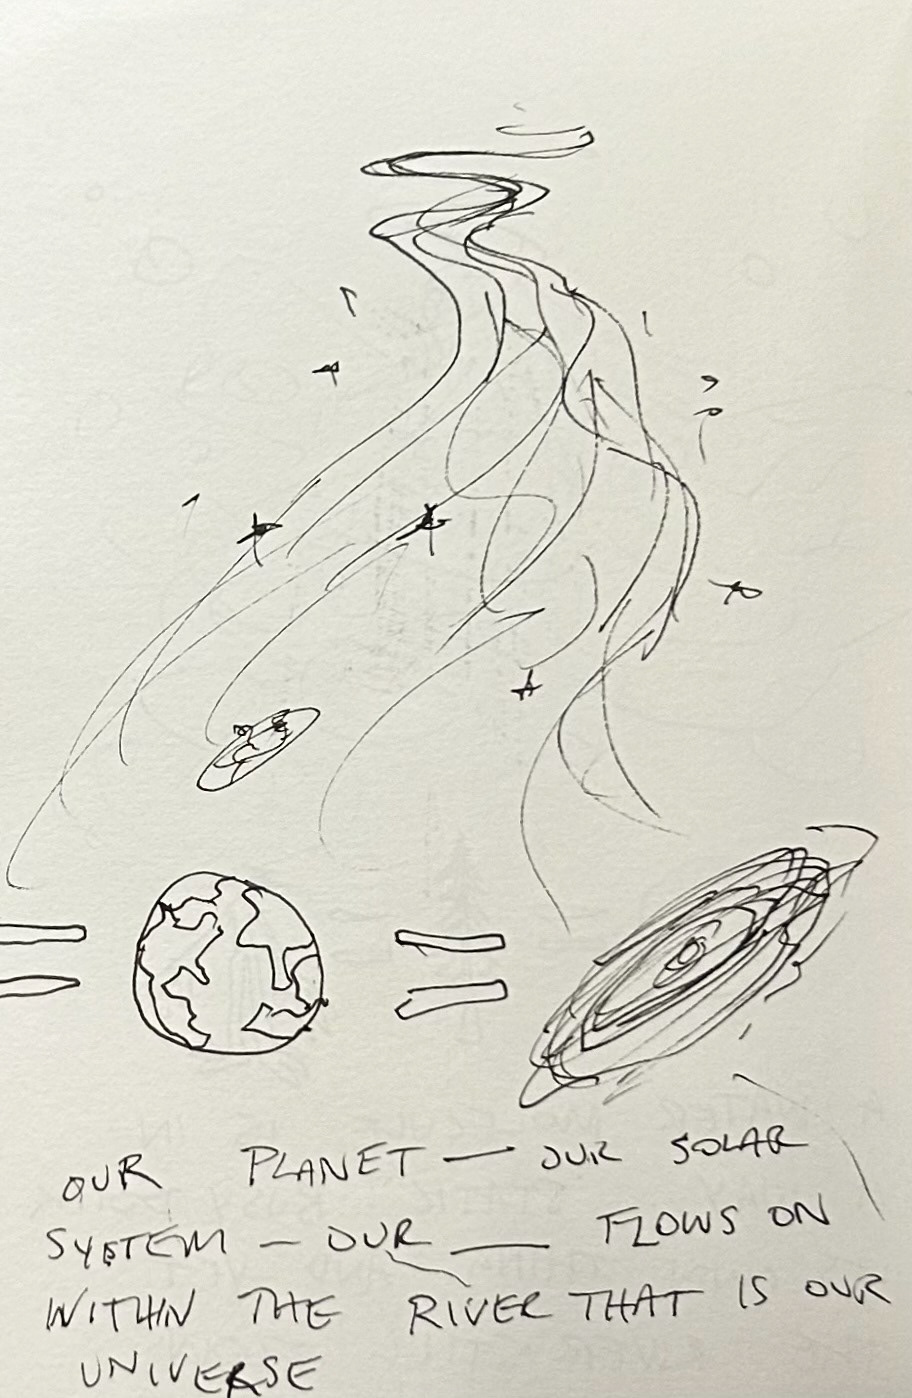 OUR PLANET — OUR SOLAR
SYSTEM — OUR ___ FLOWS ON
WITHIN THE RIVER THAT IS OUR
UNIVERSE